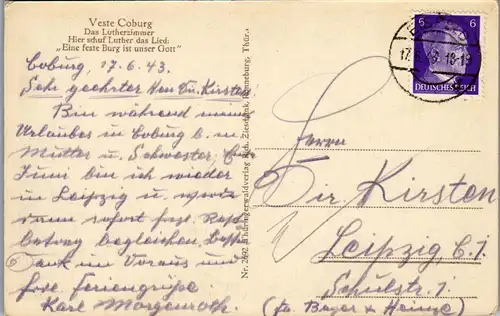 Veste Coburg
Das Lutherzimmer
Hier schuf Luther das Lied:
„Eine feste Burg ist unser Gott"
Coburg, 17.6.43.
Sehr geehrter Herr Dir. Kirsten.
Bin während meines
Urlaubes in Coburg b. m.
Mutter u. Schwester.
Juni bin ich wieder
in Leipzig u. werde
dann sofort fgl.
betrag begleichen. Besten
Dank im Voraus und
frdl. Feriengrüße.
Karl Morgenroth.
Nr. 2492 Thüringerwaldverlag Rich. Zieschank, Ronneburg, Thür.
6 6
DEUTSCHES REICH
17. 18-19
Herrn
Dir. Kirsten
Leipzig C.1.
Schulstr. 1
(fa. Beyer & Heinze)